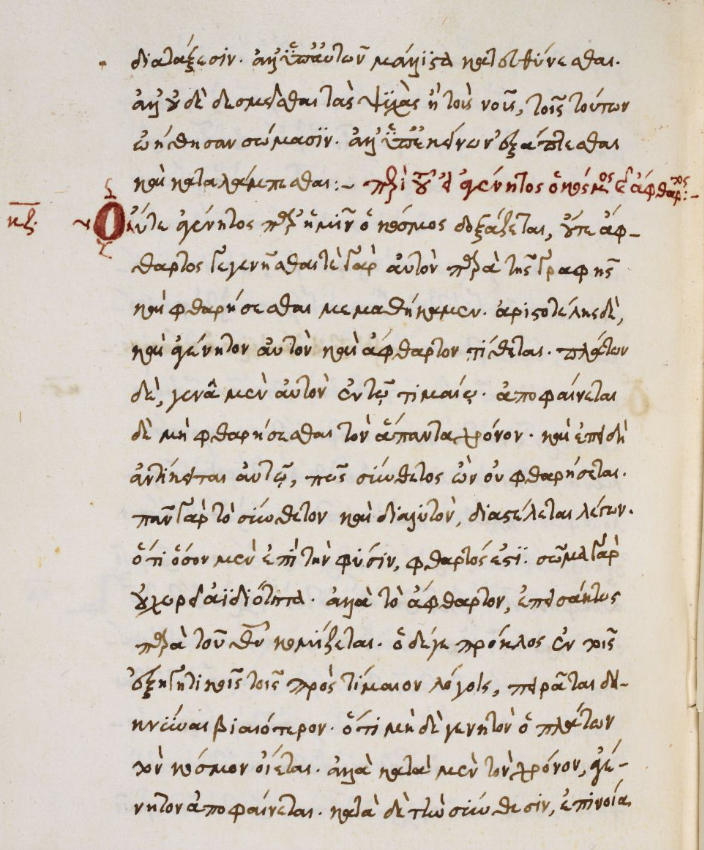 διατάξεσιν. ἀλλ' ὑπ' αὐτῶν μάλιστα κατευθύνεσθαι.
ἀλλ' οὐδὲ δεσμεῖσθαι τὰς ψυχὰς ἢ τοὺς νοῦς, τοῖς τούτων
σώμασϊν. ἀλλ' ὑπ' ἐκείνων ἐξάπτεσθαι
καὶ καταλάμπεσθαι:~ περὶ τοῦ εἰ ἀγένητος ὁ κόσμος καὶ ἄφθαρτος:~
κζ. Οὔτε ἀγένητος παρ' ἡμῖν ὁ κόσμος δοξάζεται, οὔτε ἄφ-
θαρτος γεγενῆσθαι τὲ γὰρ αὐτὸν παρὰ τῆς γραφῆς
καὶ φθαρήσεσθαι μεμαθήκαμεν. ἀριστοτέλης δὲ,
καὶ ἀγένητον αὐτὸν καὶ ἄφθαρτον τίθεται. πλάτων
δὲ, γενᾶ μὲν αὐτὸν ἐν τῷ τιμαίῳ. ἀποφαίνεται
δὲ μὴ φθαρήσεσθαι τὸν ἅπαντα χρόνον. καὶ ἐπειδὴ
ἀντίκειται αὐτῷ, πῶς σύνθετος ὢν οὐ φθαρήσεται.
πᾶν γὰρ τὸ σύνθετον καὶ διαλυτὸν, διαστέλεται λέγων.
ὅτι ὅσον μὲν ἐπὶ τὴν φύσιν, φθαρτός ἐστϊ. σῶμα γὰρ
οὐ χωρεῖ ἀϊδιότητα. ἀλλὰ τὸ ἄφθαρτον, ἐπεισάκτως
παρὰ τοῦ θεοῦ κομίζεται. ὁ δέ γε πρόκλος ἐν τοῖς
ἐξηγητικοῖς τοῖς πρὸς τίμαιον λόγοις, πειρᾶται δει-
κνύναι βιαιότερον. ὅτι μὴ δὲ γενητὸν ὁ πλάτων
τὸν κόσμον οἴεται. ἀλλὰ κατὰ μὲν τὸν χρόνον, ἀγέ-
νητον ἀποφαίνεται. κατὰ δὲ τὴν σύνθεσιν, ἐπινοία